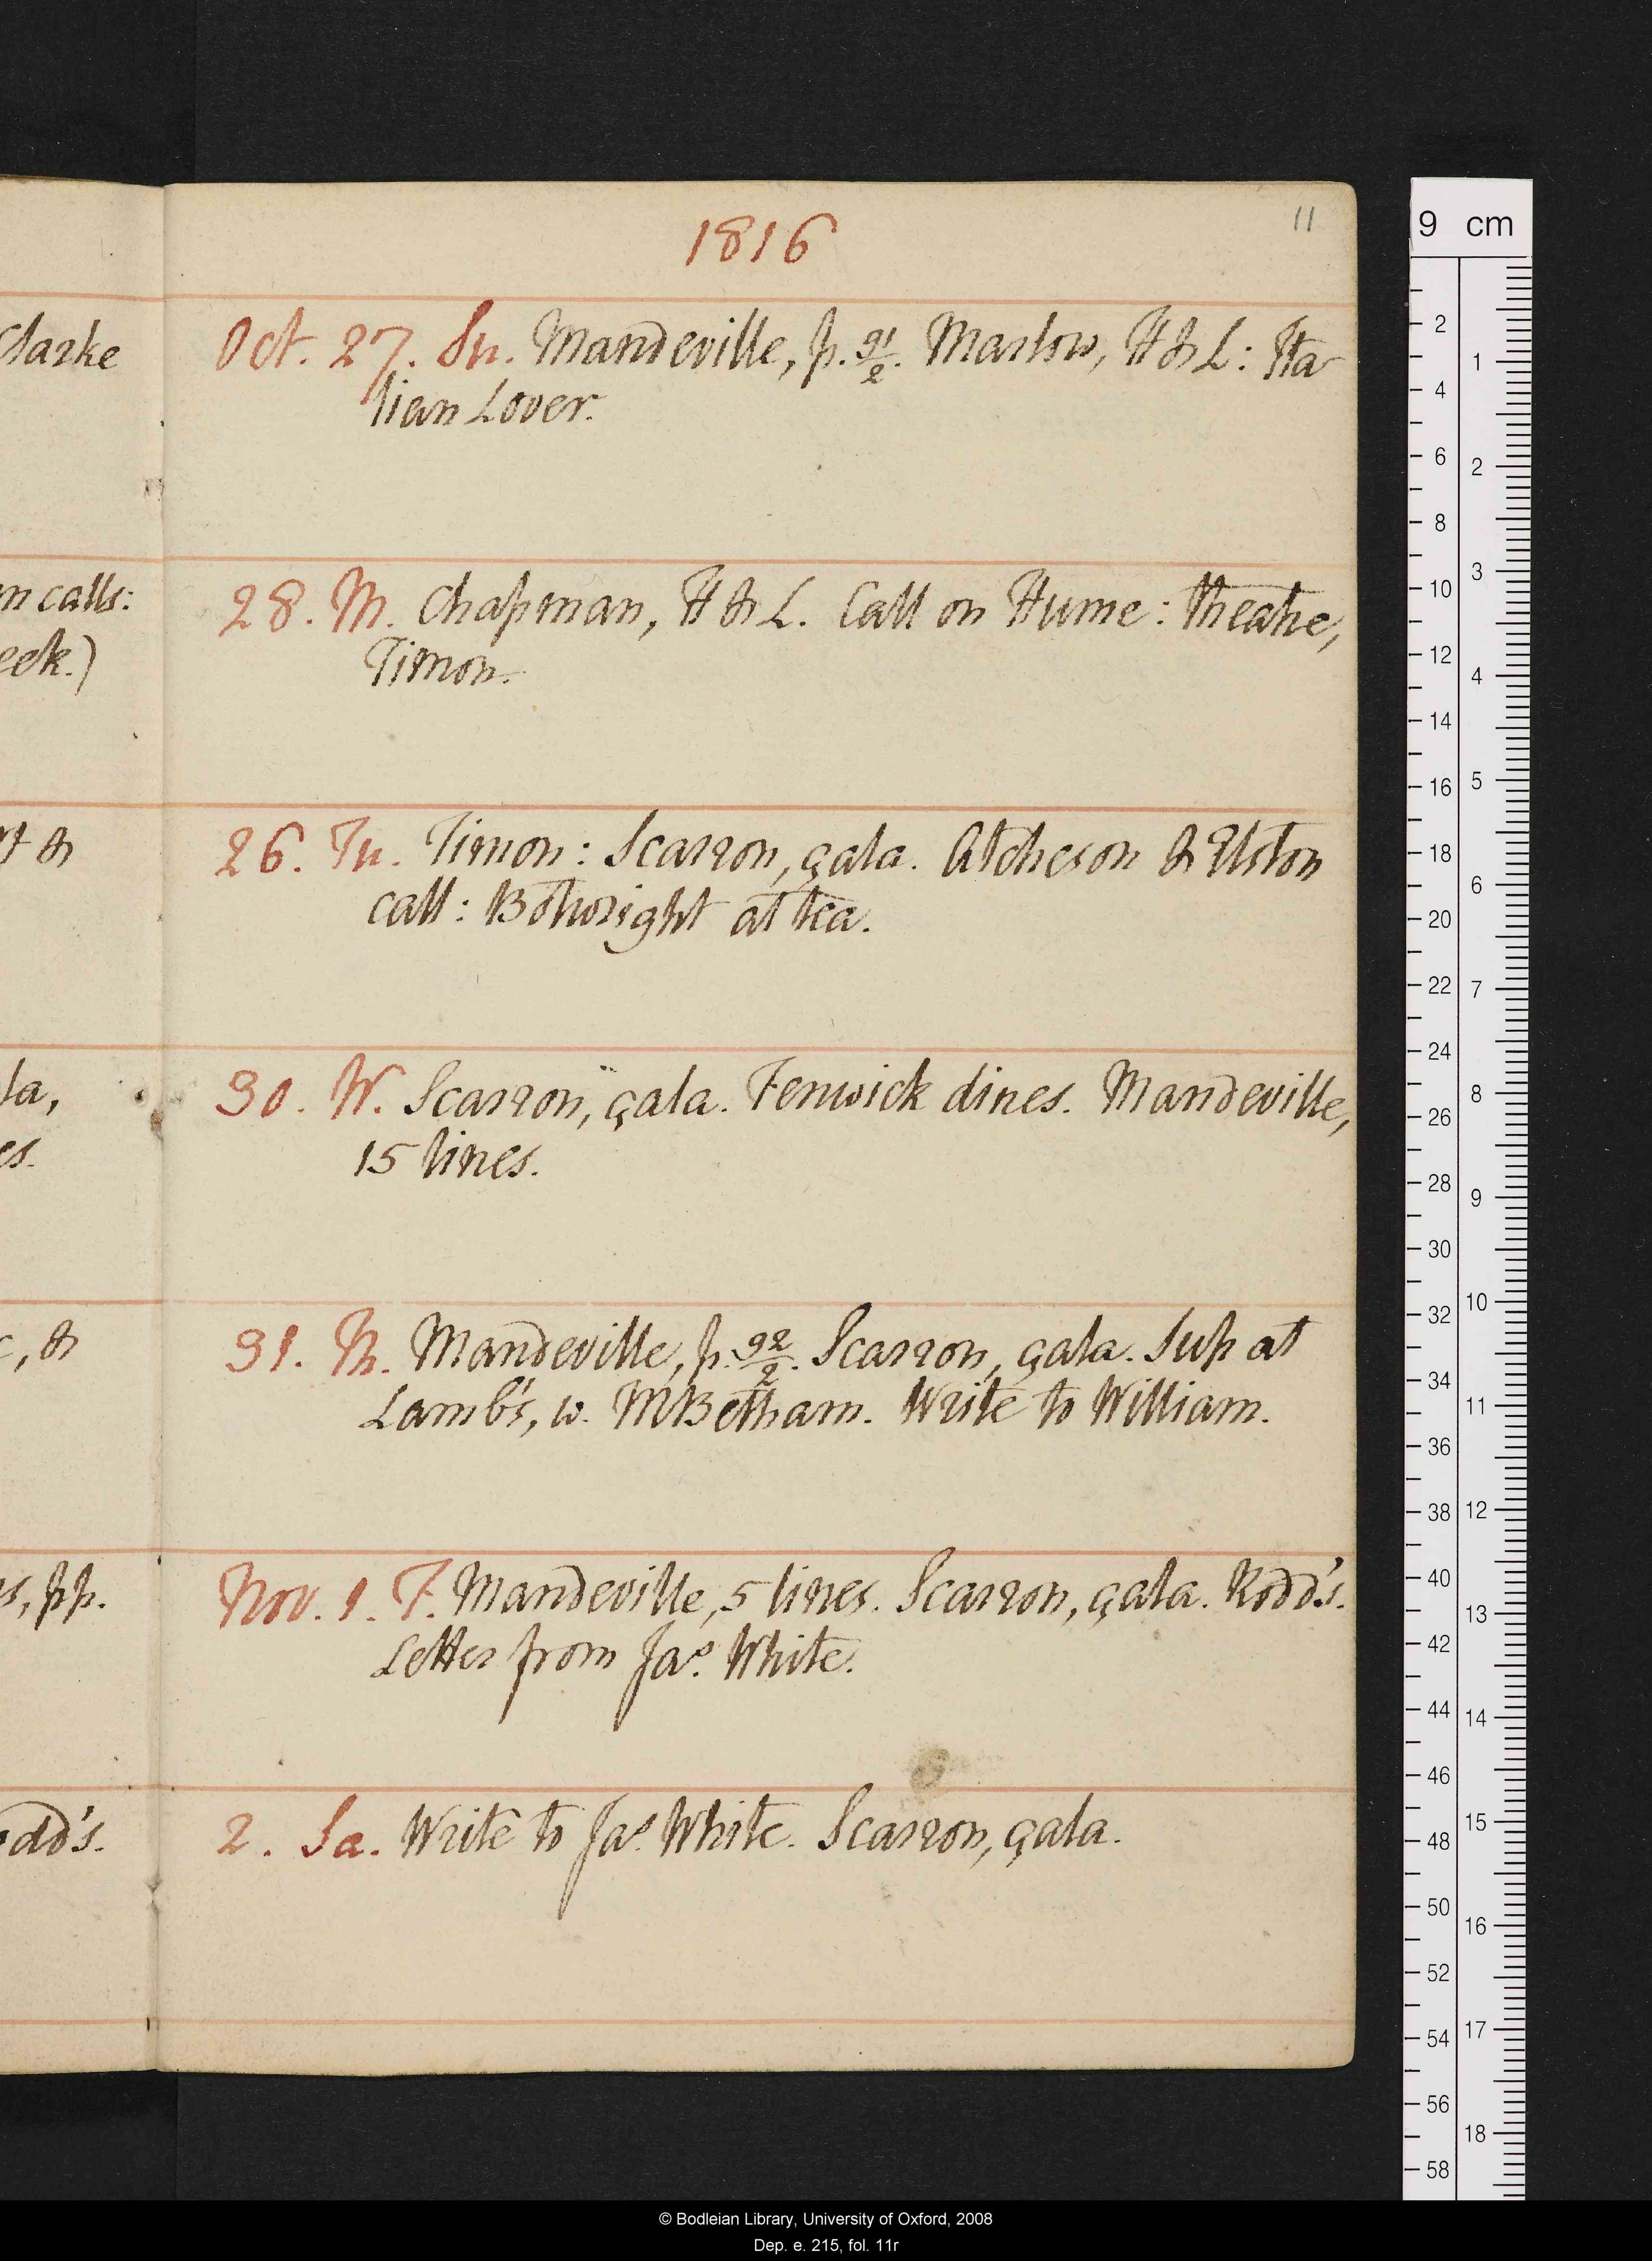 1816
11
Oct. 27. Su. Mandeville, p. 31/2. Marlow, H & L: Ita-
lian Lover.
28. M. Chapman, H & L. Call on Hume: theatre,
Timon.
26. Tu. Timon: Scarron, çala. Atcheson & Elston
call: Botwright at tea.
30. W. Scarron, çala. Fenwick dines. Mandeville,
15 lines.
31. Th. Mandeville, p. 32/2. Scarron, çala. Sup at
Lamb's, w. M Betham. Write to William.
Nov. 1. F. Mandeville, 5 lines. Scarron, çala. Rodd's.
Letter from Jas. White.
2. Sa. Write to Jas. White. Scarron, çala.
Clarke
calls:
&
, &
, pp.
9 cm
2
4
6
8
10
12
14
16
18
20
22
24
26
28
30
32
34
36
38
40
42
44
46
48
50
52
54
56
58
1
2
3
4
5
6
7
8
9
10
11
12
13
14
15
16
17
18
© Bodleian Library, University of Oxford, 2008
Dep. e. 215, fol. 11r